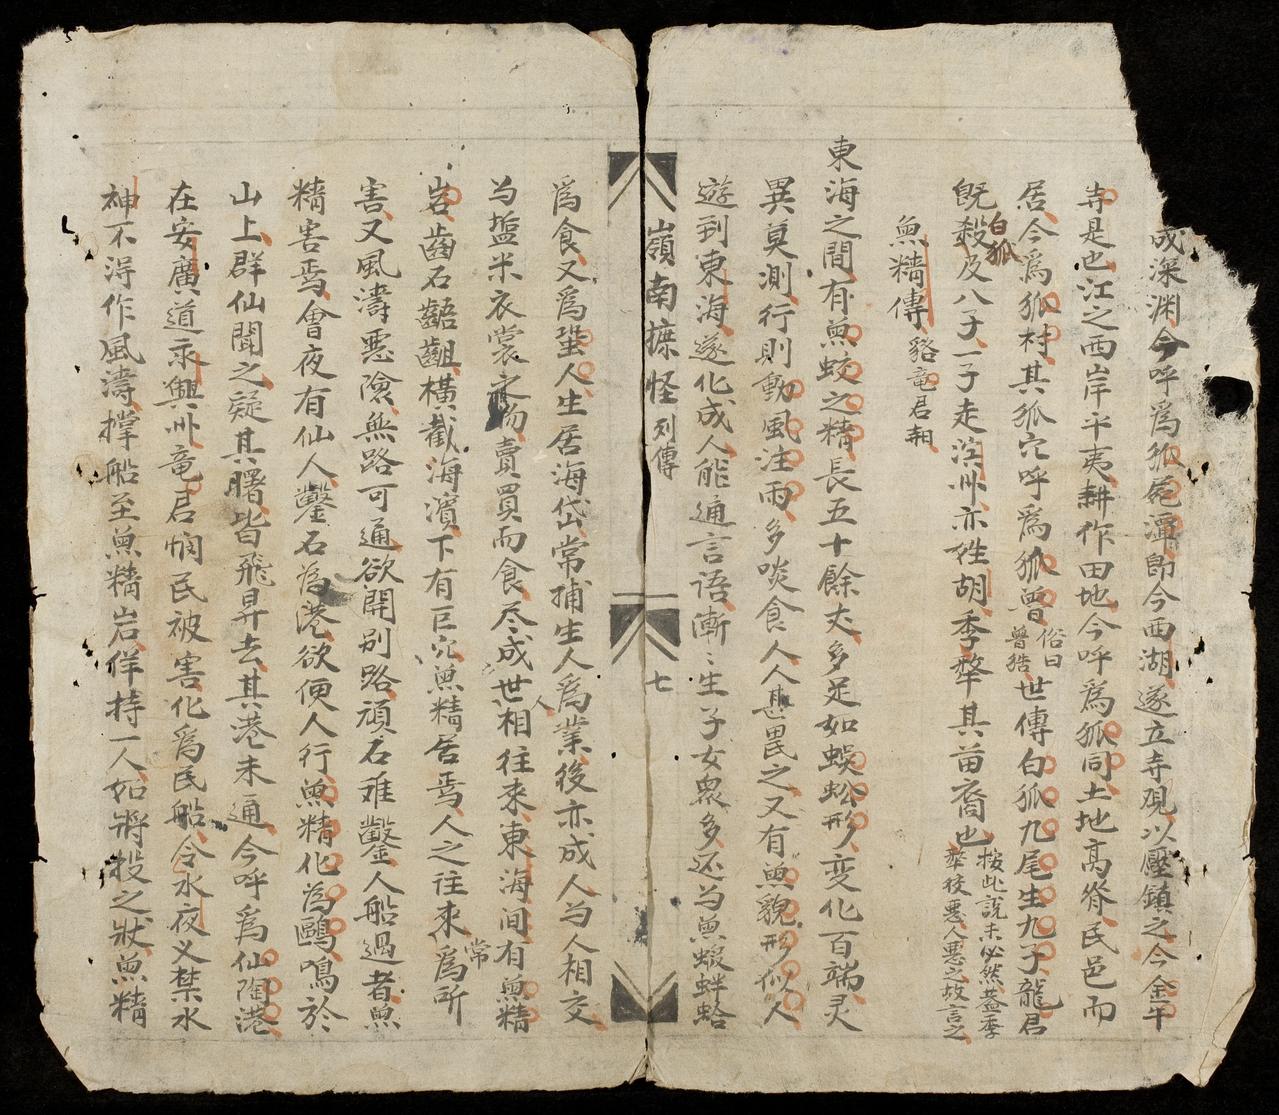 成深渊今呼爲狐窟潭即今西湖遂立寺观以壓鎮之今金牛
寺是也江之西岸平夷耕作田地今呼爲狐同土地高脊民邑而
居今爲狐村其狐穴呼爲狐曾俗曰曾狤世傳白狐九尾生九子龍君
既殺白狐及八子一子走演州亦姓胡季犛其苗裔也按此說未必然盖季犛狡悪人悪之故言之
魚精傳貉竜君朝
東海之間有魚蛟之精長五十餘丈多足如蜈蚣形变化百端灵
異莫測行則動風注雨多啖食人人甚畏之又有魚貌形似人
遊到東海遂化成人能通言語漸〻生子女衆多还为魚蝦蚌蛤
嶺南摭怪列傳
七
爲食又爲蜑人生居海岱常捕生人爲業後亦成人为人相交
为塩米衣裳之物賣買而食尽成世人相往来東海间有魚精
岩齒石齬齟横截海濱下有巨穴魚精居焉人之往来常爲所
害又風濤悪險無路可通欲開别路頑石难鑿人船過者魚
精害焉會夜有仙人鑿石為港欲便人行魚精化為鷗鳴於
山上群仙聞之疑其曙皆飛昇去其港未通今呼爲仙陶港
在安廣道永興州竜君悯民被害化爲民船令水夜叉禁水
神不淂作風濤撑船至魚精岩佯持一人如將投之狀魚精